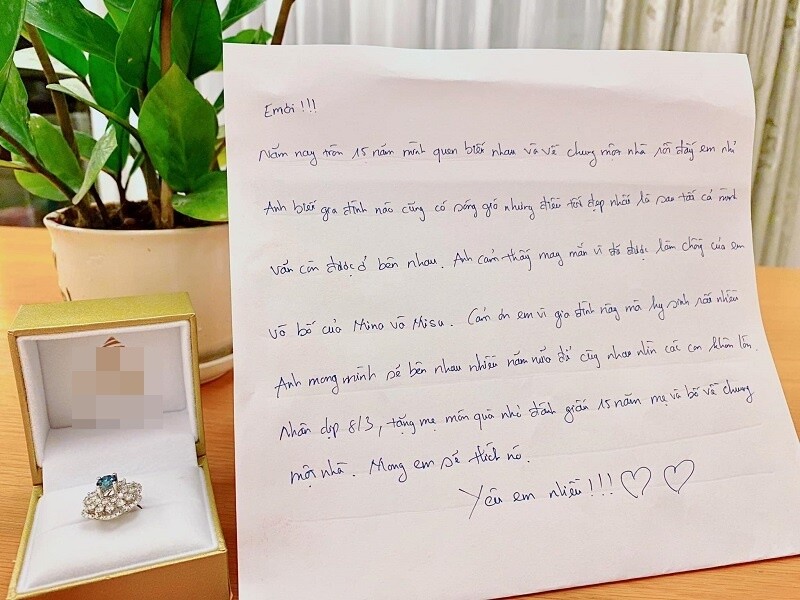 Em ơi !!!
Năm nay tròn 15 năm mình quen biết nhau và về chung một nhà rồi đấy em nhỉ
Anh biết gia đình nào cũng có sóng gió nhưng điều tốt đẹp nhất là sau tất cả mình
vẫn còn được ở bên nhau. Anh cảm thấy may mắn vì đã được làm chồng của em
và bố của Mina và Misu. Cảm ơn em vì gia đình này mà hy sinh rất nhiều
Anh mong mình sẽ bên nhau nhiều năm nữa để cùng nhau nhìn các con khôn lớn.
Nhân dịp 8/3, tặng mẹ món quà nhỏ đánh giấu 15 năm mẹ và bố về chung
một nhà. Mong em sẽ thích nó.
Yêu em nhiều !!! ♡ ♡